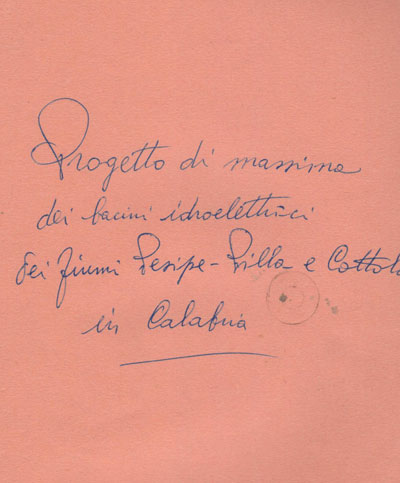 Progetto di massima
dei bacini idroelettrici
dei fiumi Pesipe - Pilla - e Cottola
in Calabria